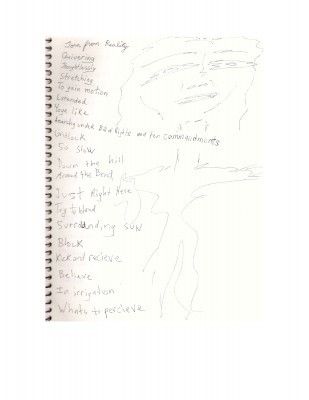 Torn from Reality
Quivering
Thoughtlessly
Stretching
To gain motion
Extended
Page like
under Bill of Rights and ten commandments
Gridlock
So Slow
Down the hill
Around the Bend
Just Right Here
Try to blend
Surrounding SUN
Block
Kick and recieve
Behave
In irrigation
Whats to percieve